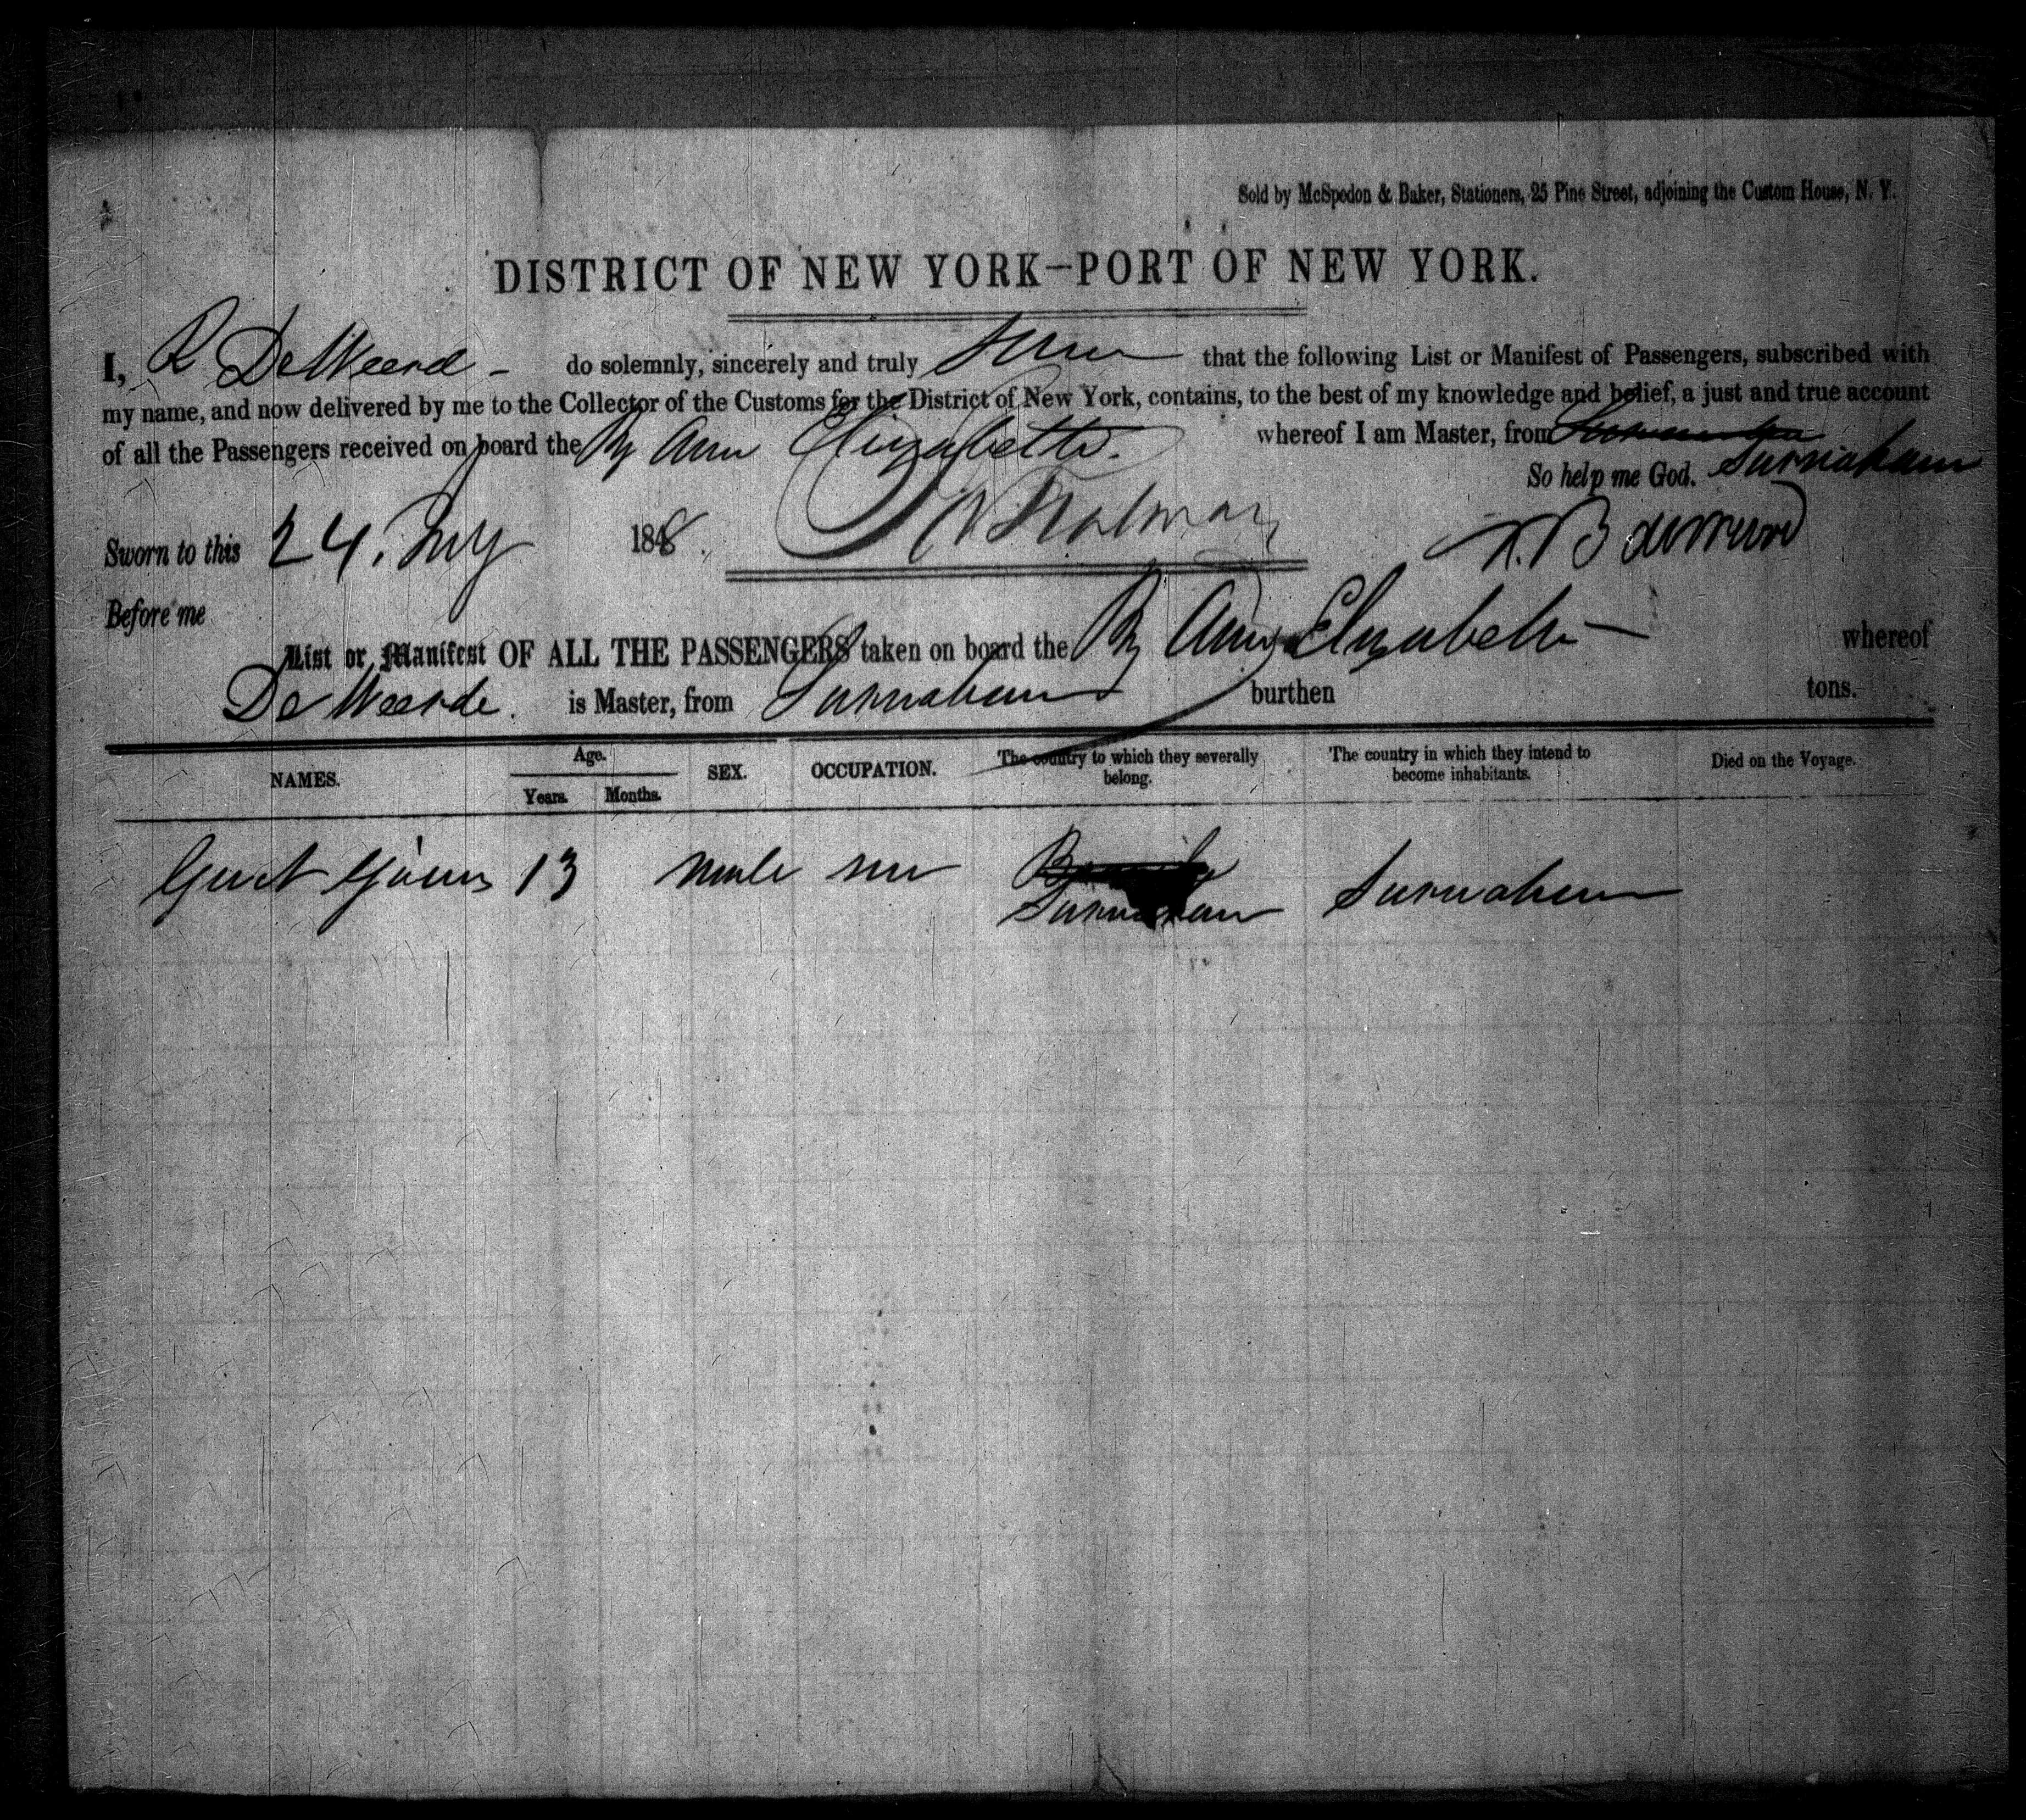 Sold by McSpedon & Baker, Stationers, 25 Pine Street, adjoining the Custom House, N. Y.
DISTRICT OF NEW YORK—PORT OF NEW YORK.
I, R DeWeerd - do solemnly, sincerely and truly that the following List or Manifest of Passengers, subscribed with
my name, and now delivered by me to the Collector of the Customs for the District of New York, contains, to the best of my knowledge and belief, a just and true account
of all the Passengers received on board the Ann Elizabeth. whereof I am Master, from
So help me God.
Sworn to this 24. July 1848.
Before me
List or Manifest OF ALL THE PASSENGERS taken on board the Ann Elizabeth — whereof
De Weerde. is Master, from burthen tons.
NAMES. Age. SEX. OCCUPATION. The country to which they severally belong. The country in which they intend to become inhabitants. Died on the Voyage.
Years. Months.
13 male